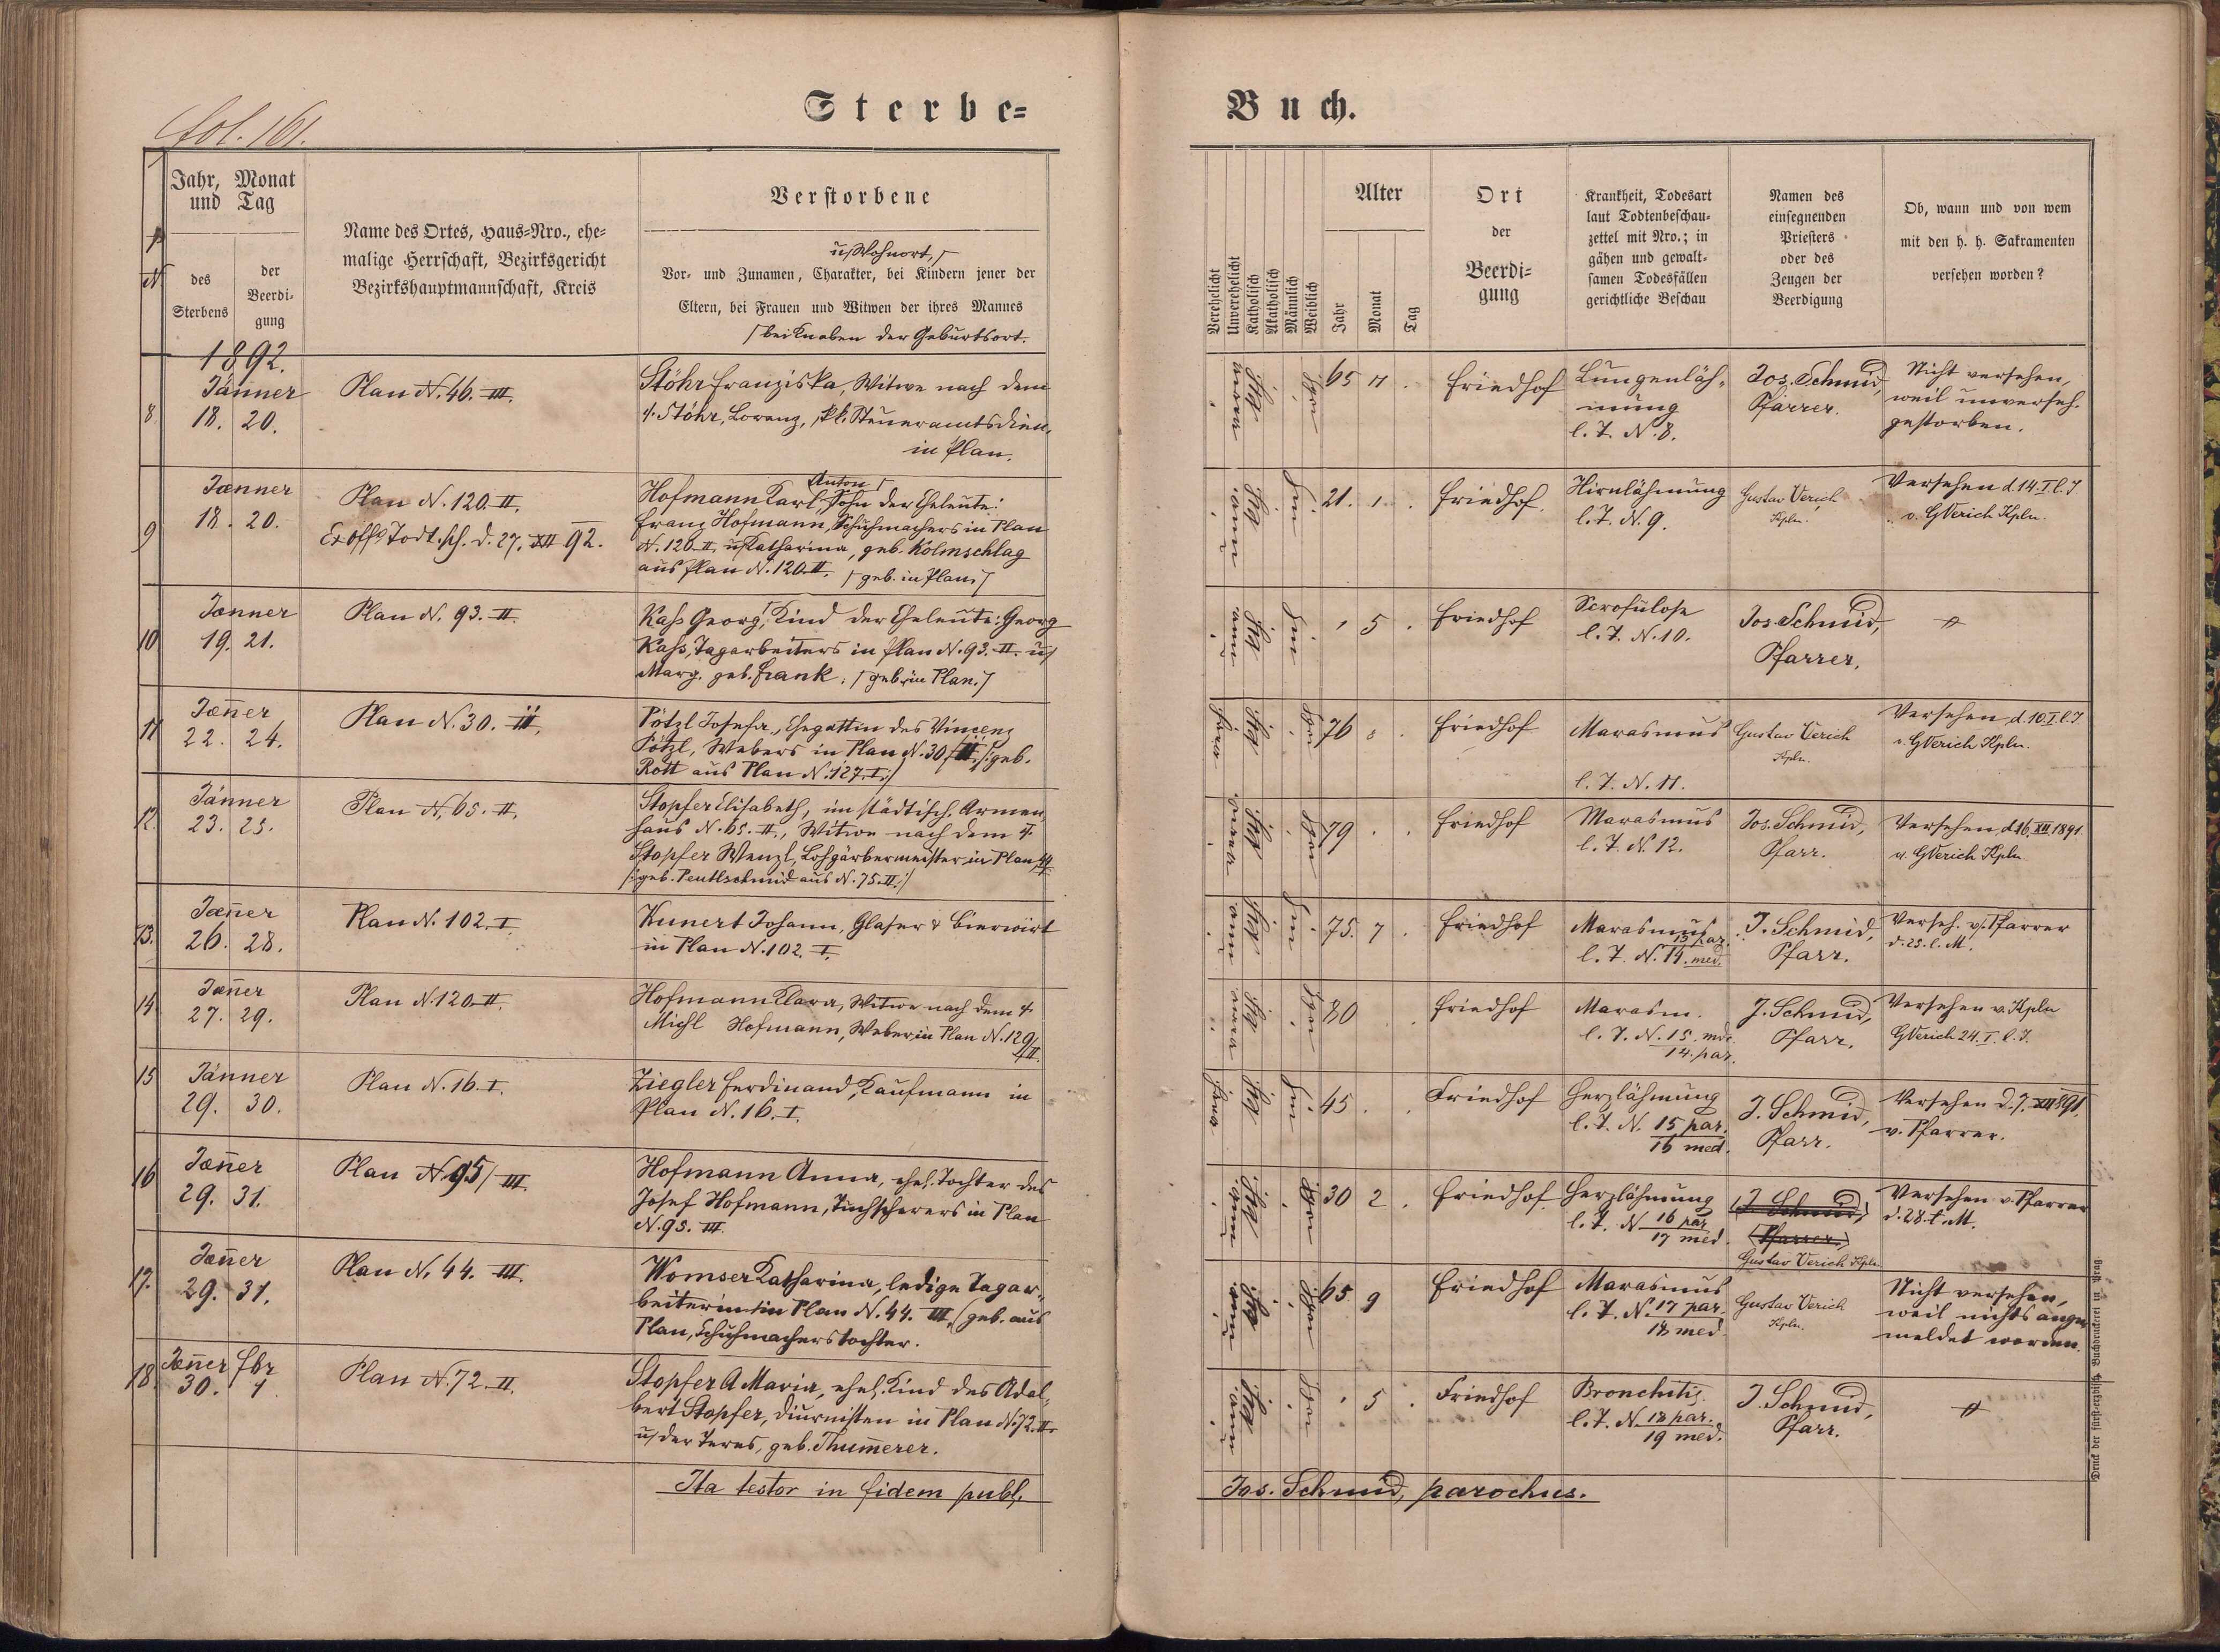 fol. 161.
Sterbe=
Jahr, Monat
und Tag
des
Sterbens
der
Beerdi-
gung
Name des Ortes, Haus=Nro., ehe-
malige Herrschaft, Bezirksgericht
Bezirkshauptmannschaft, Kreis
Verstorbene
u/Wohnort,/
Vor- und Zunamen, Charakter, bei Kindern jener der
Eltern, bei Frauen und Witwen der ihres Mannes
/bei Knaben der Geburtsort.
1892.
8
Jänner
18. 20.
Plan N. 46. III.
Stöhr Franziska, Witwe nach dem
†. Stöhr, Lorenz, k.k. Steueramtsdien.
in Plan.
9
Jænner
18. 20.
Plan N. 120. II.
Ex offo Todt.sch. d. 27. XII 92.
Anton /
Hofmann Karl, Sohn der Eheleute:
Franz Hofmann, Schuhmachers in Plan
N. 120. II. u/Katharina, geb. Kolmschlag
aus Plan N. 120. II. /geb. in Plan./
10
Jænner
19. 21.
Plan N. 93. II.
Kaß Georg, Kind der Eheleute: Georg
Kaß, Tagarbeiters in Plan N. 93. II. u/
Marg. geb. Frank. /geb. in Plan./
11
Jæn̄er
22. 24.
Plan N. 30. III.
Pötzl Josefa, Ehegattin des Vincenz
Pötzl, Webers in Plan N. 30/III. /:geb.
Rott aus Plan N. 127. I.:/
12.
Jänner
23. 25.
Plan N. 65. II.
Stopfer Elisabeth, im städtisch. Armen,
haus N. 65. II., Witwe nach dem †.
Stopfer Wenzl, Lohgärbermeister in Plan
/:geb. Peutlschmid aus N. 75. II.:/
13.
Jæn̄er
26. 28.
Plan N. 102. I.
Kunert Johann, Glaser & Bierwirt
in Plan N. 102. I.
14
Jæn̄er
27. 29.
Plan N. 120. II.
Hofmann Klara, Witwe nach dem †.
Michl Hofmann, Weber, in Plan N. 120/II.
15
Jänner
29. 30.
Plan N. 16. I.
Ziegler Ferdinand, Kaufmann in
Plan N. 16. I.
16
Jæn̄er
29. 31.
Plan N. 95/III.
Hofmann Anna, ehel. Tochter des
Josef Hofmann, Tuchscherers in Plan
N. 95. III.
17.
Jæn̄er
29. 31.
Plan N. 44. III.
Womser Katharina, ledige Tagar-
beiterin in Plan N. 44. III. (geb. aus
Plan, Schuhmacherstochter.
18.
Jæn̄er Fbr
30. 1.
Plan N. 72. II.
Stopfer A Maria, ehel. Kind des Adal-
bert Stopfer, Diurnisten in Plan N. 72. II.
u/ der Teres, geb. Thum̄erer.
Ita testor in fidem publ.
Buch.
Verehelicht
Unverehelicht
Katholisch
Akatholisch
Männlich
Weiblich
Alter
Jahr
Monat
Tag
Ort
der
Beerdi-
gung
Krankheit, Todesart
laut Todtenbeschau-
zettel mit Nro.; in
gähen und gewalt-
samen Todesfällen
gerichtliche Beschau
Namen des
einsegnenden
Priesters
oder des
Zeugen der
Beerdigung
Ob, wann und von wem
mit den h. h. Sakramenten
versehen worden?
65 11 .
Friedhof
Lungenläh-
mung
l. T. N. 8.
Jos. Schmid,
Pfarrer.
Nicht versehen,
weil unverseh.
gestorben.
21. 1. .
Friedhof.
Hirnlähmung
l. T. N. 9.
Gustav Verich
Kpln.
Versehen d. 14. I. l. J.
v. GVerich Kpln.
5 .
Friedhof
Scrofulose
l. T. N. 10.
Jos. Schmid,
Pfarrer.
76
Friedhof
Marasmus
l. T. N. 11.
Gustav Verich
Kpln.
Versehen d. 10. I. l. J.
v. GVerich Kpln.
79 . .
Friedhof
Marasmus
l. T. N. 12.
Jos. Schmid,
Pfarr.
Versehen d. 16. XII 1891.
v. GVerich Kpln.
75. 7 .
Friedhof
Marasmus
l. T. N. 13 par.
14. med.
J. Schmid,
Pfarr.
Verseh. v. Pfarrer
d. 25. l. M.
80
Friedhof
Marasm.
l. T. N. 15. med.
14. par.
J. Schmid,
Pfarr.
Versehen v. Kpln
GVerich 24. I. l. J.
45 . .
Friedhof
Herzlähmung
l. T. N. 15 par.
16 med.
J. Schmid,
Pfarr.
Versehen d. 7. XII 891.
v. Pfarrer.
30 2 .
Friedhof.
Herzlähmung
l. T. N 16 par
17 med.
(J. Schmid,)
(Pfarrer.)
Gustav Verich Kpln.
Versehen v. Pfarrer
d. 28. l. M.
65 9
Friedhof
Marasmus
l. T. N. 17 par.
18 med.
Gustav Verich
Kpln.
Nicht versehen,
weil nichts ange-
meldet worden.
5 .
Friedhof
Bronchitis.
l. T. N 18 par.
19 med.
J. Schmid,
Pfarr.
Jos. Schmid, parochus.
Druck der fürst-erzbisch. Buchdruckerei in Prag